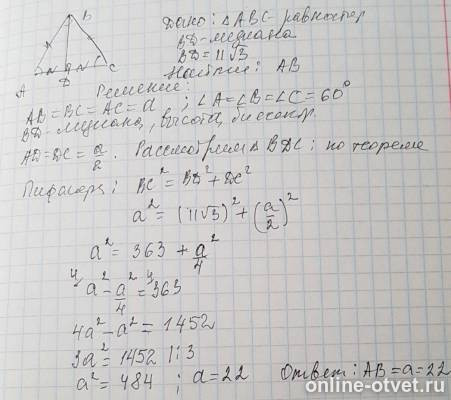 B
A D C
Дано: △ABC-равностор
BD-медиана
BD=11√3
Найти: AB
Решение:
AB=BC=AC=a ; ∠A=∠B=∠C=60°
BD-медиана, высота, биссект.
AD=DC=a/2. Рассмотрим △BDC; по теореме
Пифагора; BC²=BD²+DC²
a²=(11√3)²+(a/2)²
a²=363+a²/4
4/ a²-a²/4=363 4/
4a²-a²=1452
3a²=1452 |:3
a²=484 ; a=22 Ответ: AB=a=22
online-otvet.ru